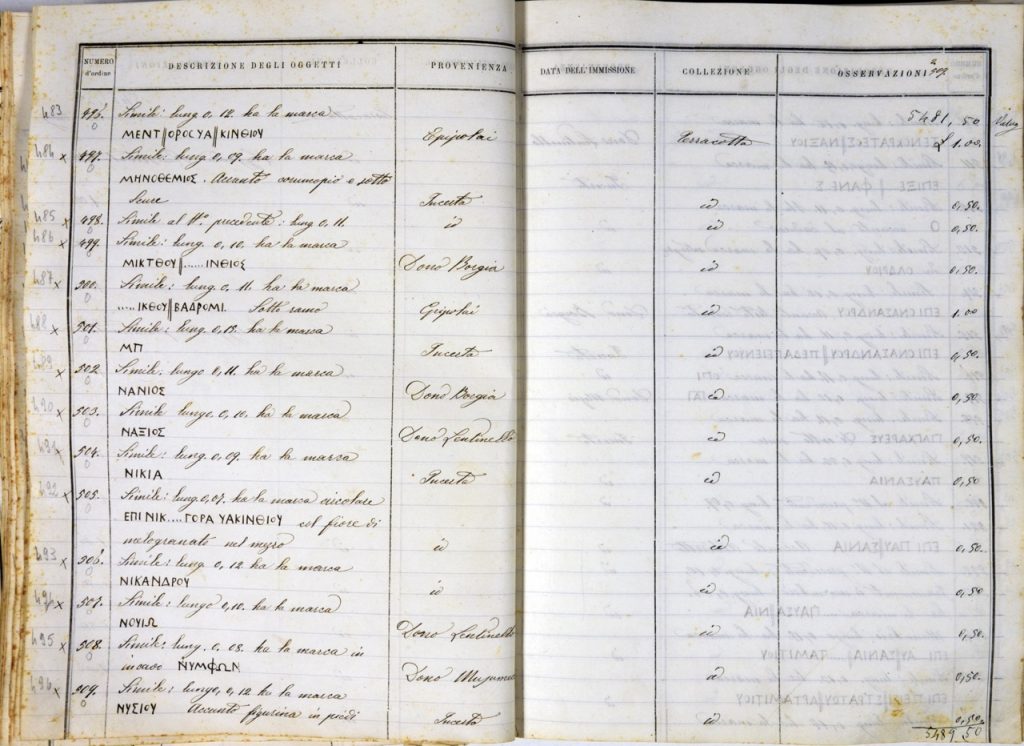 NUMERO d'ordine DESCRIZIONE DEGLI OGGETTI PROVENIENZA DATA DELL'IMMISSIONE COLLEZIONE OSSERVAZIONI
5481,50
483 496. Simile: lung 0,12. ha la marca
ΜΕΝΤ||ΟΡΟΣ ΥΑ||ΚΙΝΘΙΟΥ Epipolai Terracotta £ 1.00
484 x 497. Simile: lung. 0,09. ha la marca
ΜΗΝΟΘΕΜΙΟΣ. Accanto e sotto
Scure Incerta id 0,50.
485 x 498. Simile al N.º precedente: lung 0,11. id id 0,50.
486 x 499. Simile: lung. 0,10. ha la marca
ΜΙΚΤΘΟΥ||......ΙΝΘΙΟΣ Dono Borgia id 0,50.
487 x 500. Simile: lung. 0,11. ha la marca
.....ΙΚΘΟΥ||ΒΑΔΡΟΜΙ. Sotto ramo Epipolai id 1.00
488 x 501. Simile: lung. 0,15. ha la marca
ΜΠ Incerta id 0,50.
489 x 502. Simile: lungo 0,11. ha la marca
ΝΑΝΙΟΣ Dono Borgia id 0,50.
490 x 503. Simile lungo. 0,10. ha la marca
ΝΑΞΙΟΣ Dono Lentinello id 0,50.
491 x 504. Simile: lung. 0,09. ha la marca
ΝΙΚΙΑ Incerta id 0,50
492 x 505. Simile: lung. 0,07. ha la marca circolare
ΕΠΙ ΝΙΚ....ΓΟΡΑ ΥΑΚΙΝΘΙΟΥ col fiore di
melogranato nel mezzo id id 0,50.
493 x 506. Simile: lung. 0,12. ha la marca
ΝΙΚΑΝΔΡΟΥ id id 0,50
494 x 507. Simile: lungo 0,10. ha la marca
ΝΟΥΙΩ Dono Lentinello id 0,50.
495 x 508. Simile: lung. 0,08. ha la marca in
incavo ΝΥΜΦΩΝ Dono id 0,50.
496 x 509. Simile: lungo, 0,12 ha la marca
ΝΥΣΙΟΥ Accanto figurina in piedi Incerta id 0,50.
5489 50